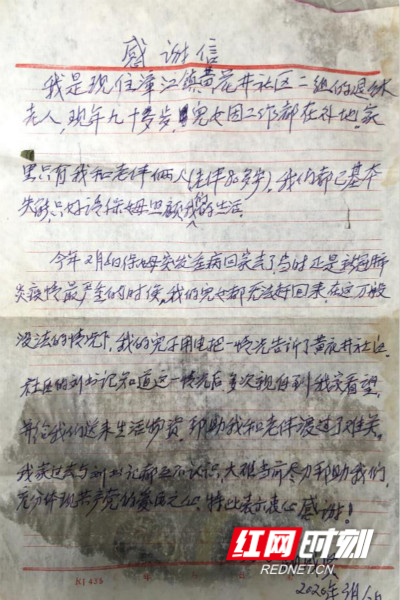 感谢信
我是现住漳江镇黄花井社区二组的退休
老人，现年九十多岁，儿女因工作都在外地。家
里只有我和老伴俩人(老伴80多岁)。我们都已基本
失能，只好请保姆照顾我们的生活。
今年2月的保姆突发急病回家去了，当时正是新冠肺
炎疫情最严重的时候，我的儿女都无法好回来，在这万般
没法的情况下，我的儿子用电把一情况告诉了黄花井社区。
社区的刘书记知道这一情况后多次亲自到我家看望，
并给我们送来生活物资，帮助我和老伴渡过了难关。
我家过去与刘书记都互不认识，大难当前尽力帮助我们，
充分体现共产党的爱民之心。特此表示衷心感谢！
2020年3月
红网时刻
REDNET.CN